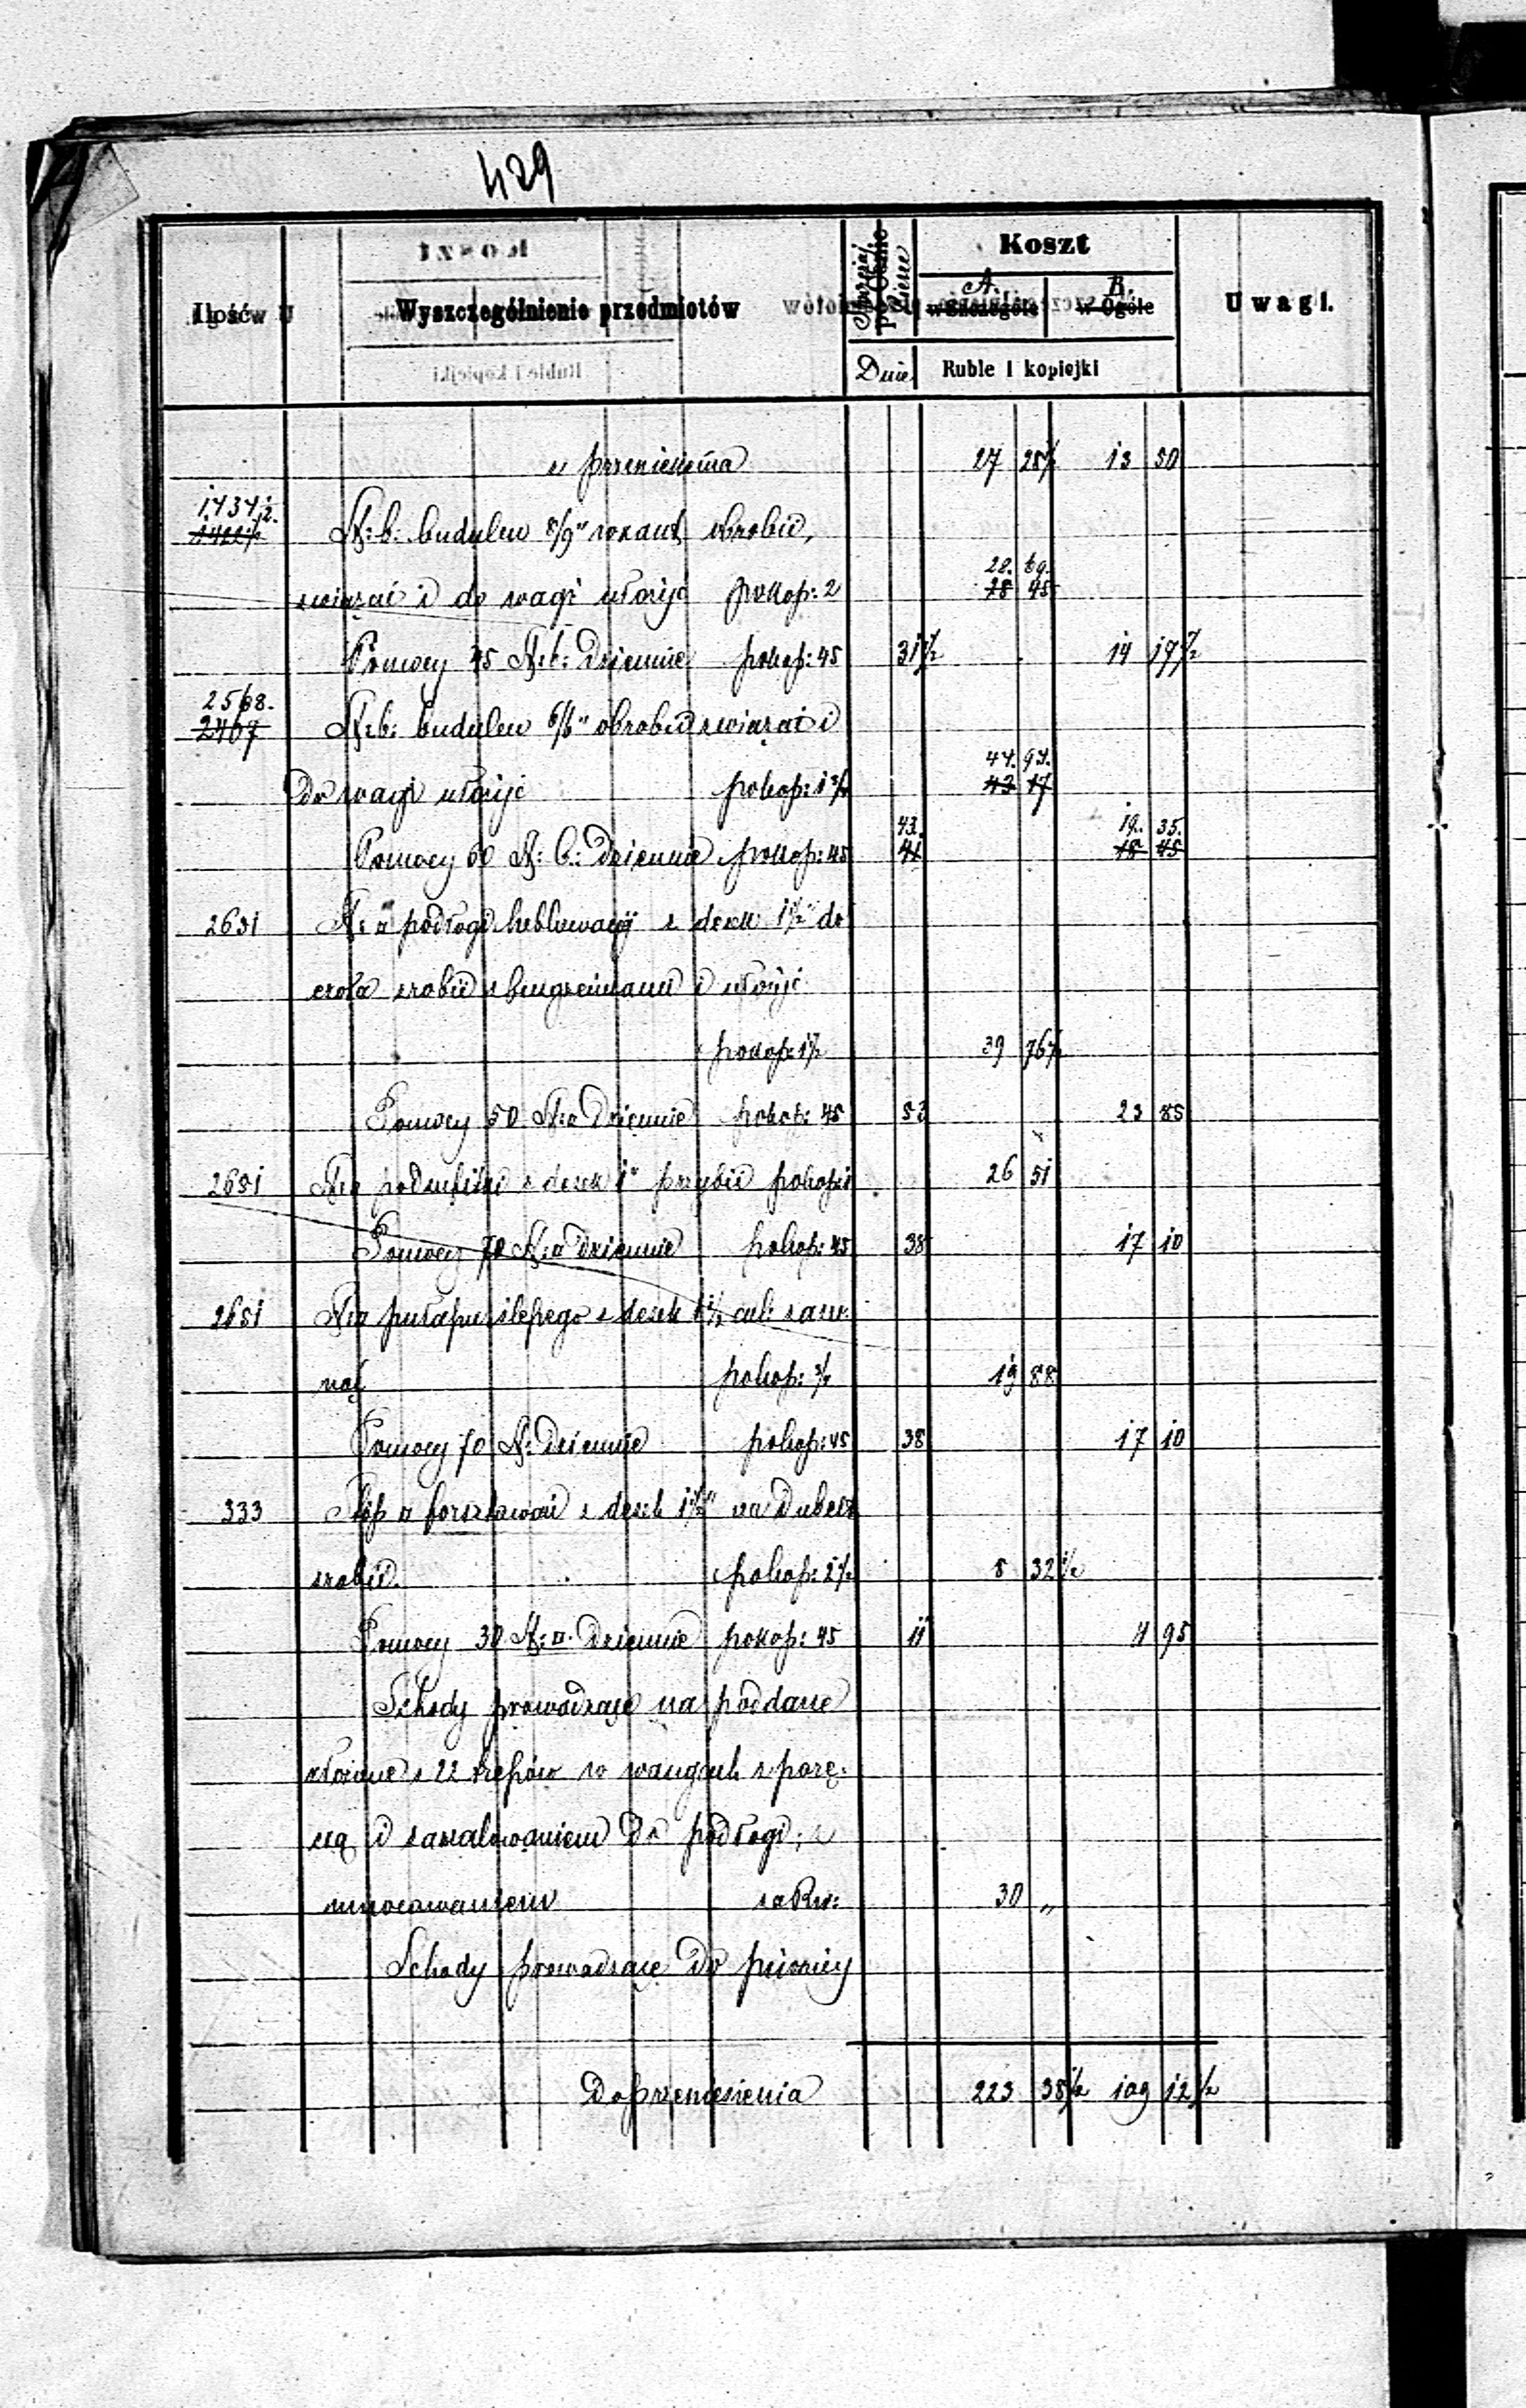 429
Ilość Wyszczególnienie przedmiotów Dnie Koszt A. w Szczególe B. w Ogóle Ruble i kopiejki Uwagi.
z przeniesienia 27 25½ 13 50
1434½. 
St: b: budulcu 8/9" w kant obrobić,
związać i do wagi ułożyć po kop: 2 28. 69. 28 45
Pomocy 45 St: b: dziennie po kop: 45 31½ 14 17½
2568. 2467 St: b: budulcu 6/6" obrobić związać i
do wagi ułożyć po kop: 1¾ 44. 94. 43 17
Pomocy 60 St: b: dziennie po kop: 45 43. 41 19. 35. 18 45
2651 St: □ podłogi heblowanej z desek 1½" do
czoła zrobić i ułożyć
po kop: 1½ 39 76½
Pomocy 50 St: □ dziennie po kop: 45 53 23 85
2651 St: □ podsufitki z desek 1" przybić po kop: 1 26 51
Pomocy 70 St: □ dziennie po kop: 45 38 17 10
2651 St: □ pułapu ślepego z desek 1½ cal: zasu-
nąć po kop: ¾ 19 88
Pomocy 70 St: dziennie po kop: 45 38 17 10
333 Stóp □ forsztowań z desek 1½" na dubelt
zrobić. po kop: 2½ 8 32½
Pomocy 30 St: □ dziennie po kop: 45 11 4 95
Schody prowadzące na poddasze
złożone z 22 stopniów w wangach z porę-
czą i zaszalowaniem do podłogi; z
umocowaniem za Rs: 30 "
Schody prowadzące do piwnicy
Do przeniesienia 223 38½ 109 12½